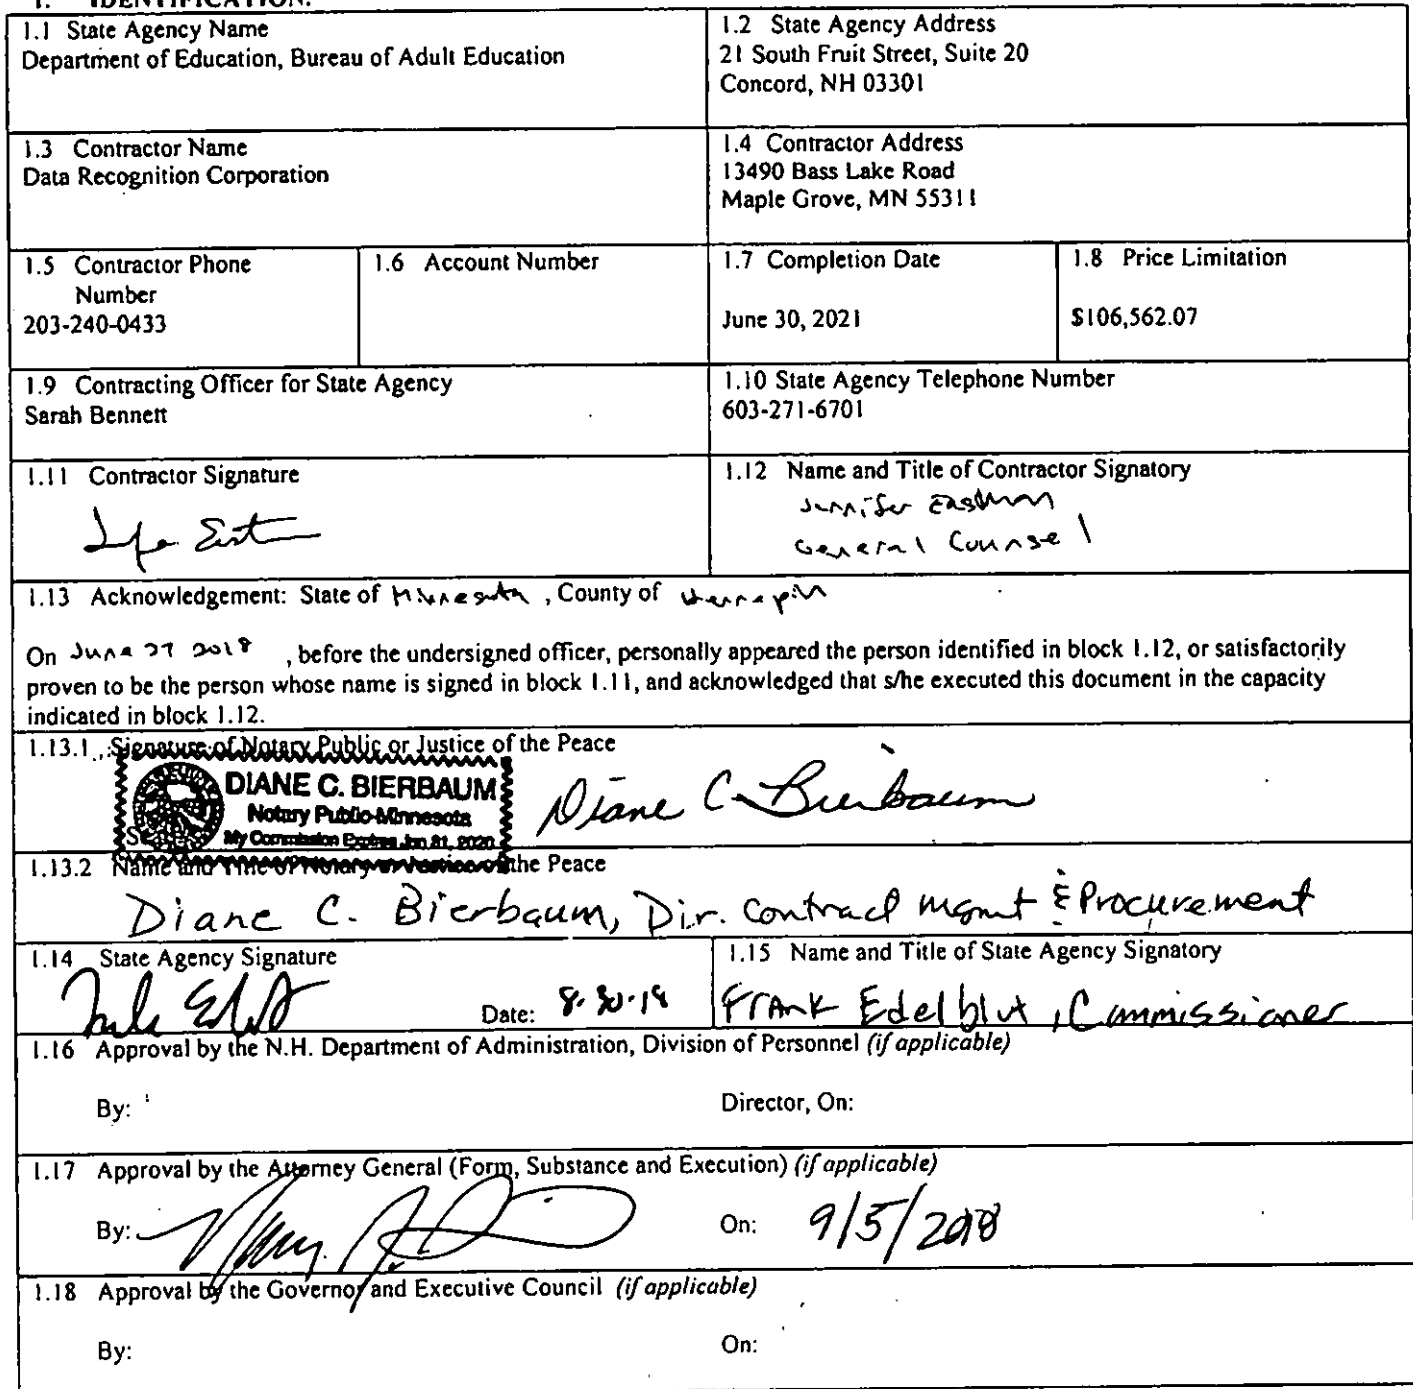 1. IDENTIFICATION.
1.1 State Agency Name
Department of Education, Bureau of Adult Education
1.2 State Agency Address
21 South Fruit Street, Suite 20
Concord, NH 03301
1.3 Contractor Name
Data Recognition Corporation
1.4 Contractor Address
13490 Bass Lake Road
Maple Grove, MN 55311
1.5 Contractor Phone
Number
203-240-0433
1.6 Account Number
1.7 Completion Date
June 30, 2021
1.8 Price Limitation
$106,562.07
1.9 Contracting Officer for State Agency
Sarah Bennett
1.10 State Agency Telephone Number
603-271-6701
1.11 Contractor Signature
1.12 Name and Title of Contractor Signatory
Jennifer Eastman
General Counsel
1.13 Acknowledgement: State of Minnesota , County of Hennepin
On June 27 2018 , before the undersigned officer, personally appeared the person identified in block 1.12, or satisfactorily
proven to be the person whose name is signed in block 1.11, and acknowledged that s/he executed this document in the capacity
indicated in block 1.12.
1.13.1 Signature of Notary Public or Justice of the Peace
DIANE C. BIERBAUM
Notary Public-Minnesota
My Commission Expires Jan 31, 2020
Diane C. Bierbaum
1.13.2 Name and Title of Notary or Justice of the Peace
Diane C. Bierbaum, Dir. Contract mgmt & Procurement
1.14 State Agency Signature
Date: 8-30-18
1.15 Name and Title of State Agency Signatory
Frank Edelblut, Commissioner
1.16 Approval by the N.H. Department of Administration, Division of Personnel (if applicable)
By:
Director, On:
1.17 Approval by the Attorney General (Form, Substance and Execution) (if applicable)
By:
On: 9/5/2018
1.18 Approval by the Governor and Executive Council (if applicable)
By:
On: